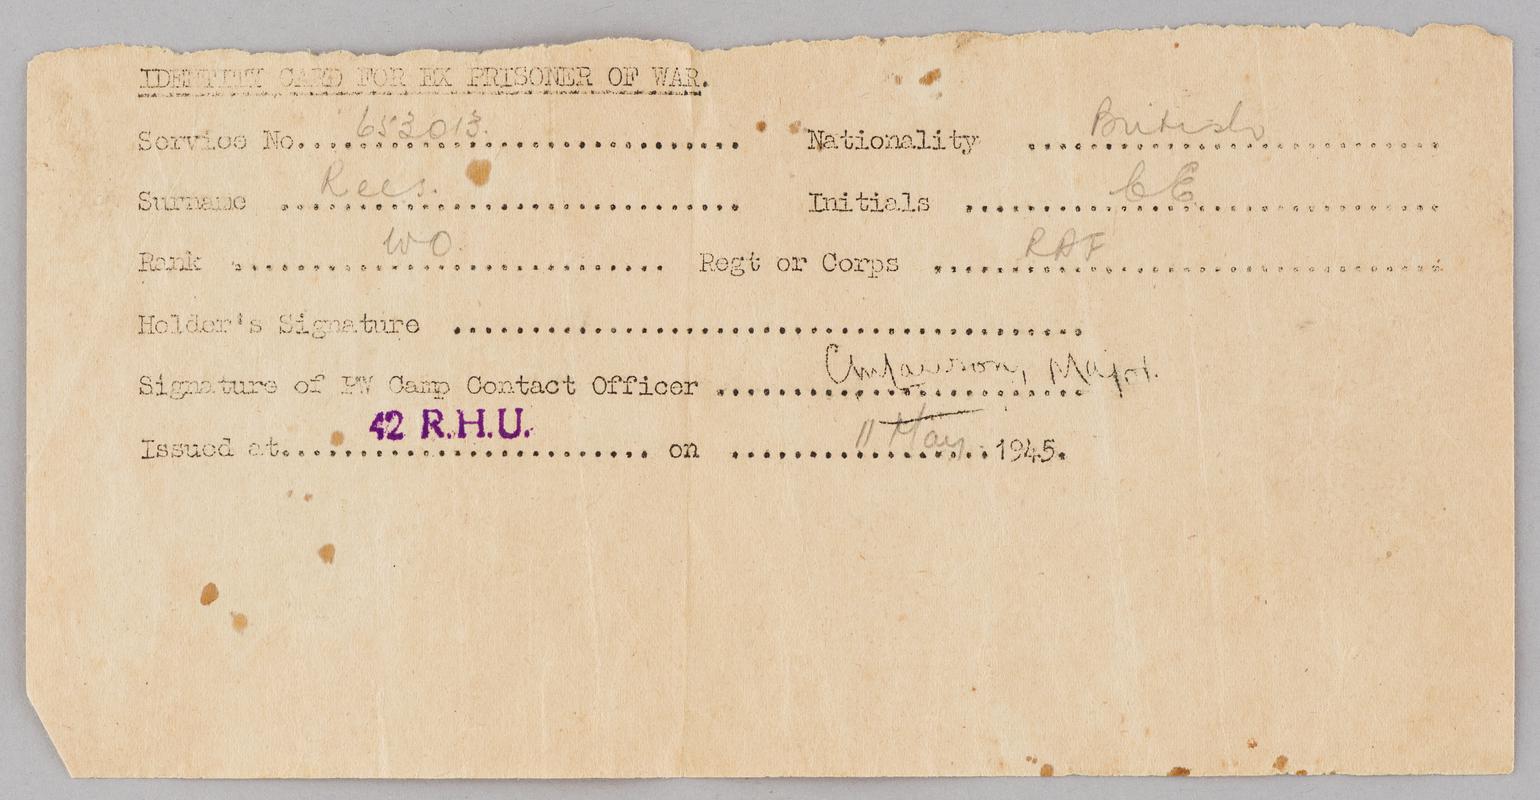 IDENTITY CARD FOR EX PRISONER OF WAR.
Service No. 653013. Nationality British
Surname Rees. Initials CE
Rank WO. Regt or Corps RAF
Holder's Signature
Signature of PW Camp Contact Officer Major.
Issued at 42 R.H.U. on 11 May 1945.